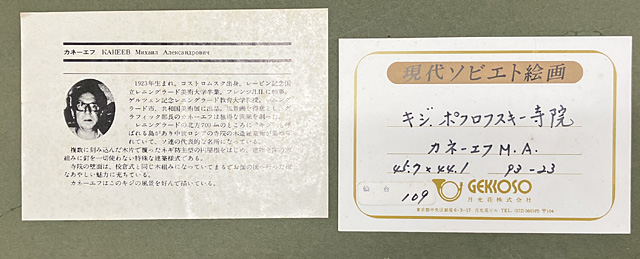 カネーエフ КАНЕЕВ Михаил Александрович
1923年生まれ。コストロムスク出身。レーピン記念国
立レニングラード美術大学卒業。
ゲルツェン記念レニングラード教育大学
ラード市、共和国美術展に出品。風景画を得意とし
ラフィック部長のカネーエフは独得な
レニングラードの北方700
ばれる島があり中世ロシアの寺院の木造建築物が集め
れていて、ソ連の代表的な名所になっている。
複数に刻み込んだ木片で覆ったネギ坊主型の円屋根をはじめ、
組みに釘を一切使わない特殊な建築様式である。
寺院の壁面は、校倉式と同じ木組みになっていて
なあやしい魅力に充ちている。
カネーエフはこのキジの風景を好んで描いている。
現代ソビエト絵画
キジ.ポクロフスキー寺院
カネーエフM.A.
45.7×44.1 93-23
仙台
109
GEKKOSO
月光荘株式会社